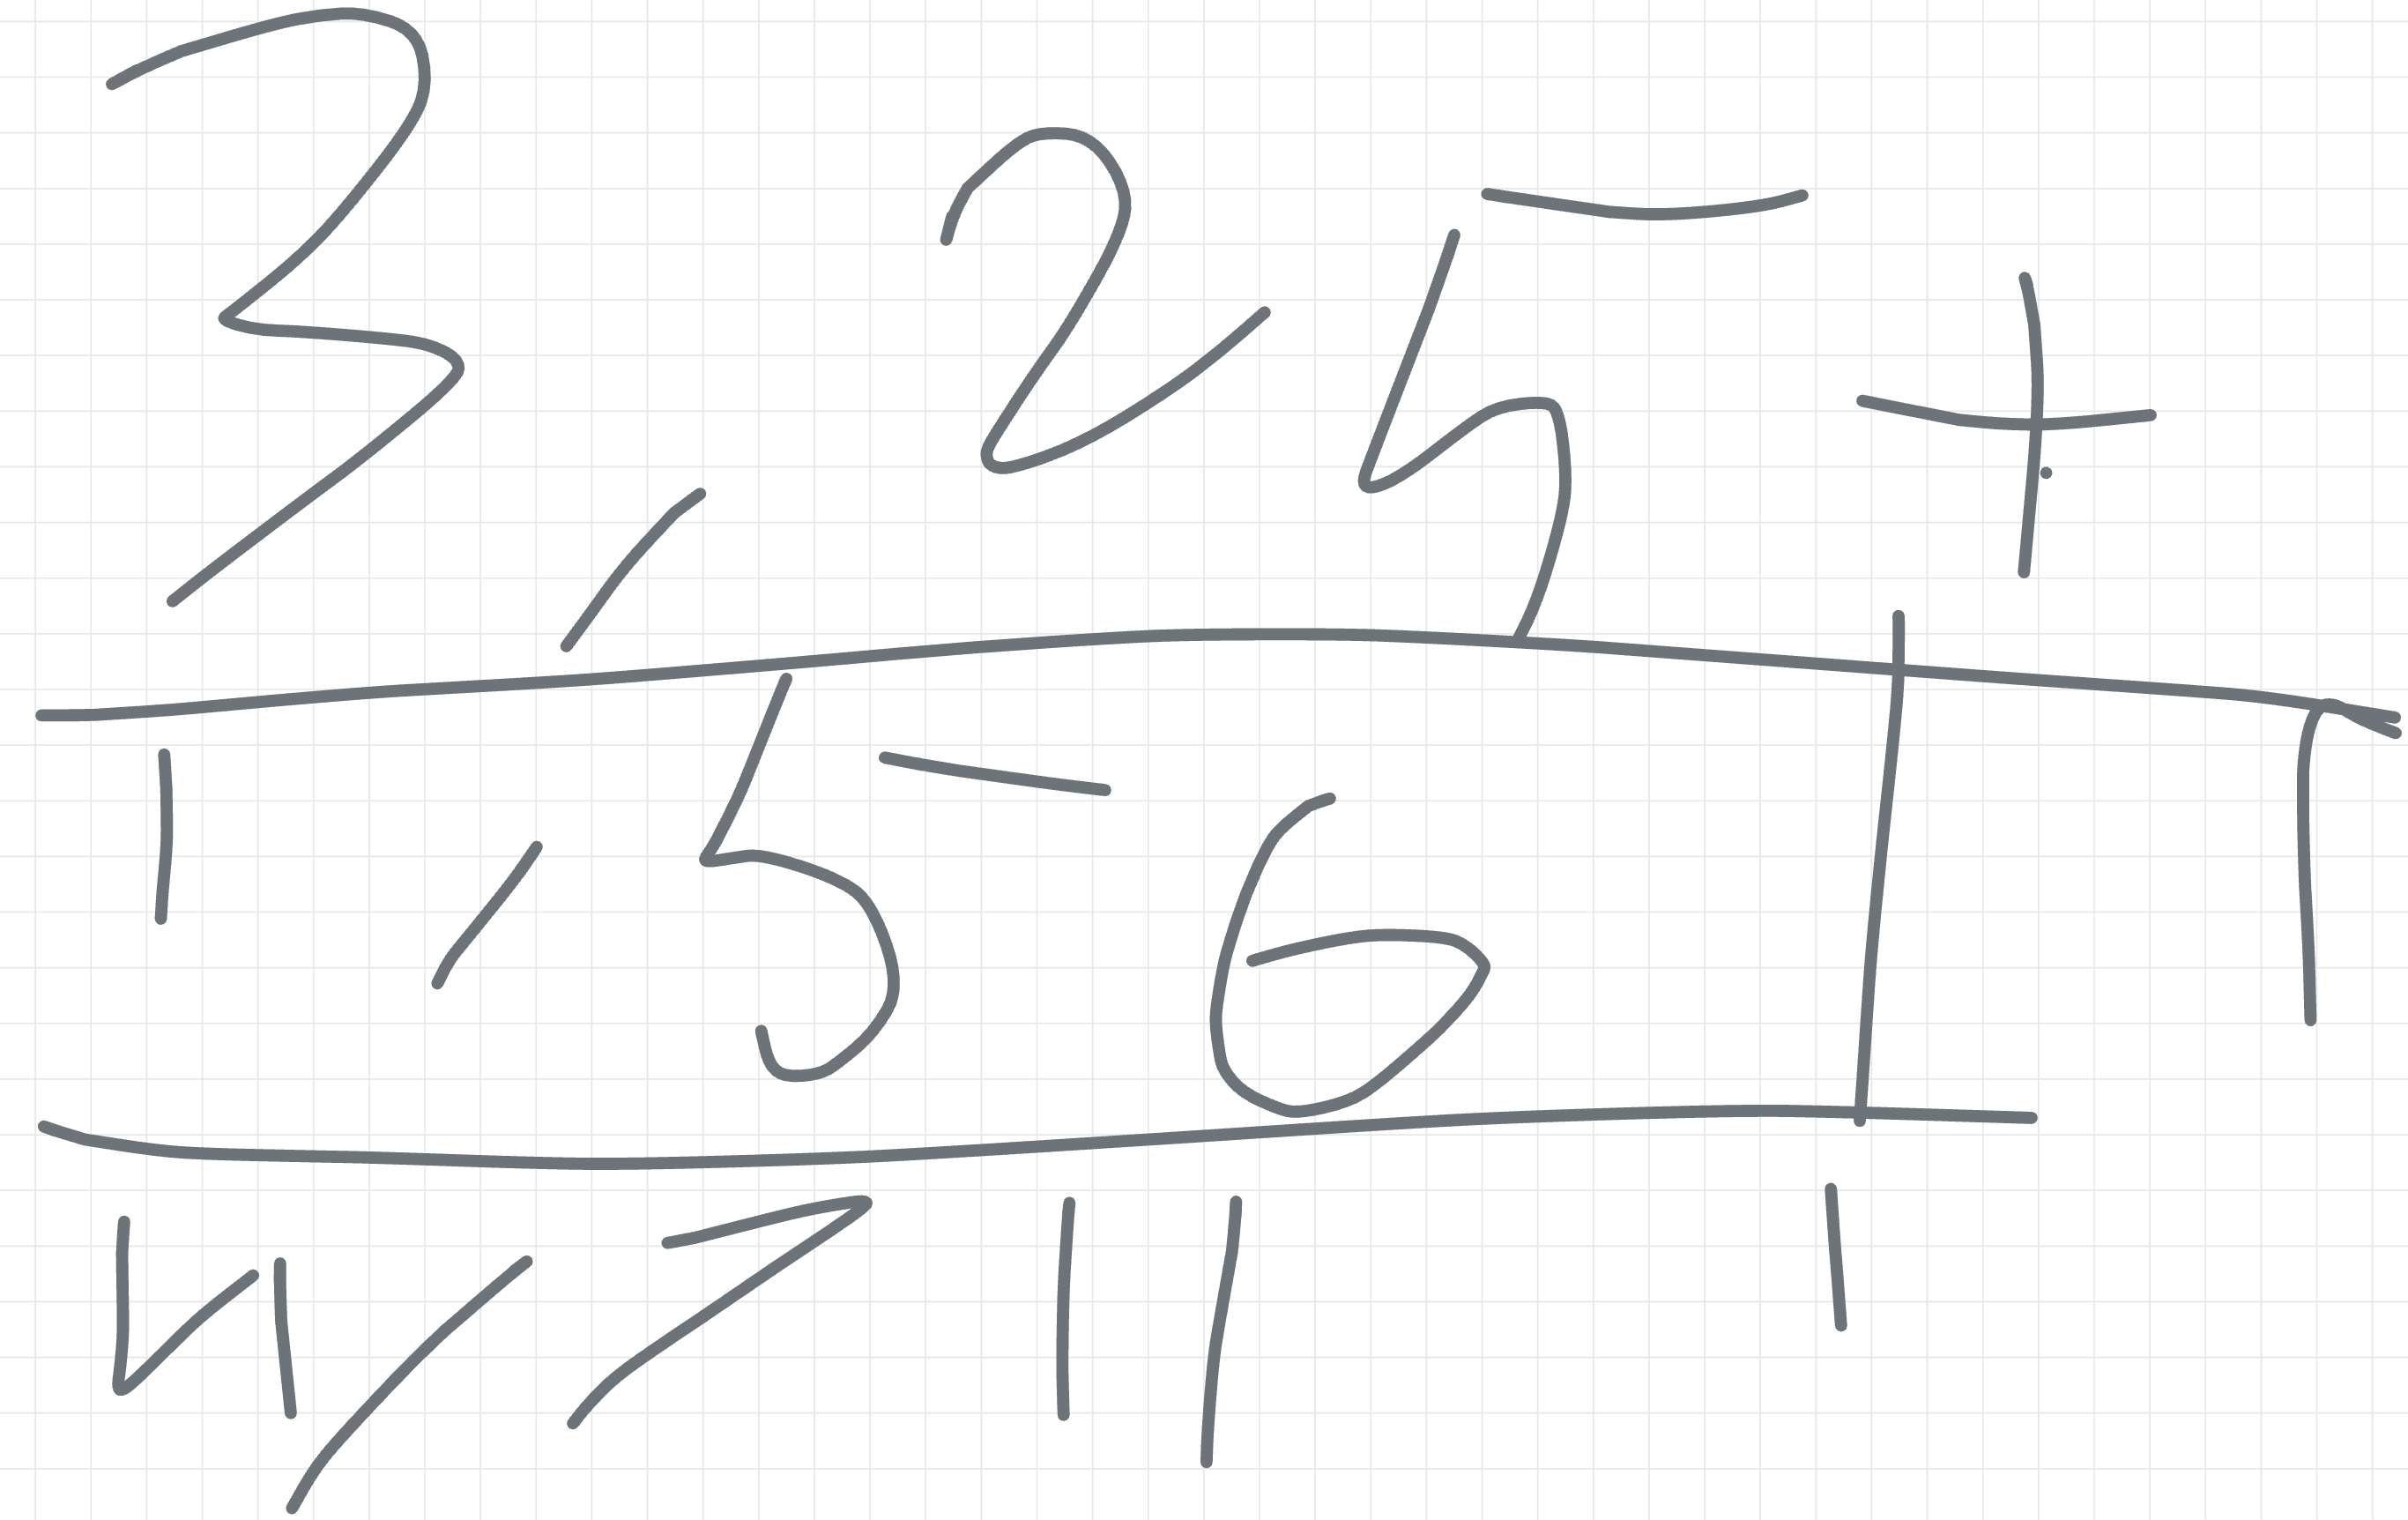 3,25 +
1,56
4,7 11 1